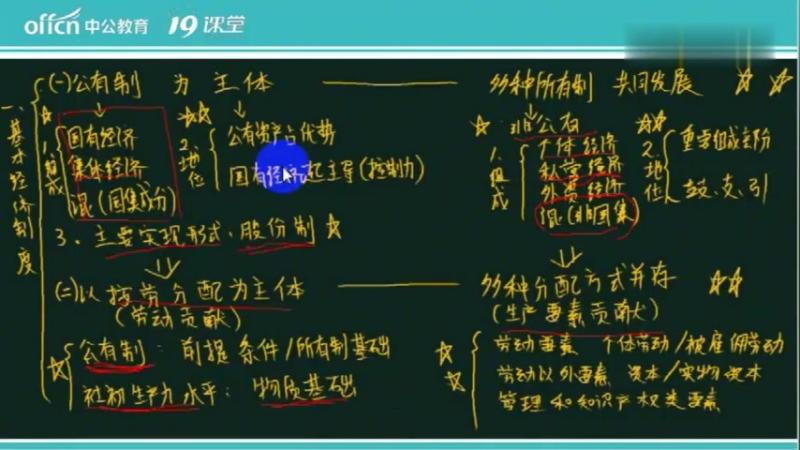 offcn 中公教育 19课堂
一、基本经济制度
(一)公有制 为 主体 —— 多种所有制 共同发展
1.组成
国有经济
集体经济
混(国集成分)
2.地位
公有资产占优势
国有经济起主导(控制力)
3、主要实现形式、股份制
非公有
1.组成
个体经济
私营经济
外资经济
混(非国集)
2.地位
重要组成部分
鼓、支、引
(二)以按劳分配为主体 —— 多种分配方式并存
(劳动贡献)
(生产要素贡献)
公有制:前提条件/所有制基础
社初生产力水平:物质基础
劳动要素 个体劳动/被雇佣劳动
劳动以外要素 资本/实物资本
管理和知识产权类要素